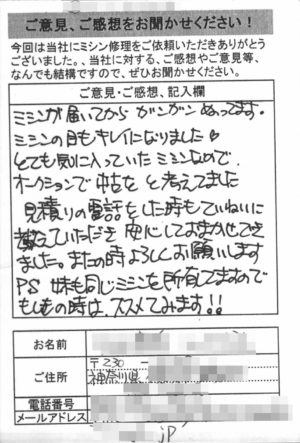 ご意見、ご感想をお聞かせください!
今回は当社にミシン修理をご依頼いただきありがとう
ございました。、当社に対する、ご感想やご意見等、
なんでも結構ですので、ぜひお聞かせください。
ご意見・ご感想、記入欄
ミシンが届いてから ガンガン ぬってます。
ミシンの目もキレイになりました♡
とても気に入っていたミシンなので、
オークションで中古を と考えてました
見積りの電話をした時もていねいに
教えていただき 安心しておまかせでき
ました。またの時よろしくお願いします
PS 妹も同じミシンを所有してますので
もしもの時は、ススメてみます!!
お名前
ご住所
〒230 -
神奈川県
電話番号
メールアドレス
jp